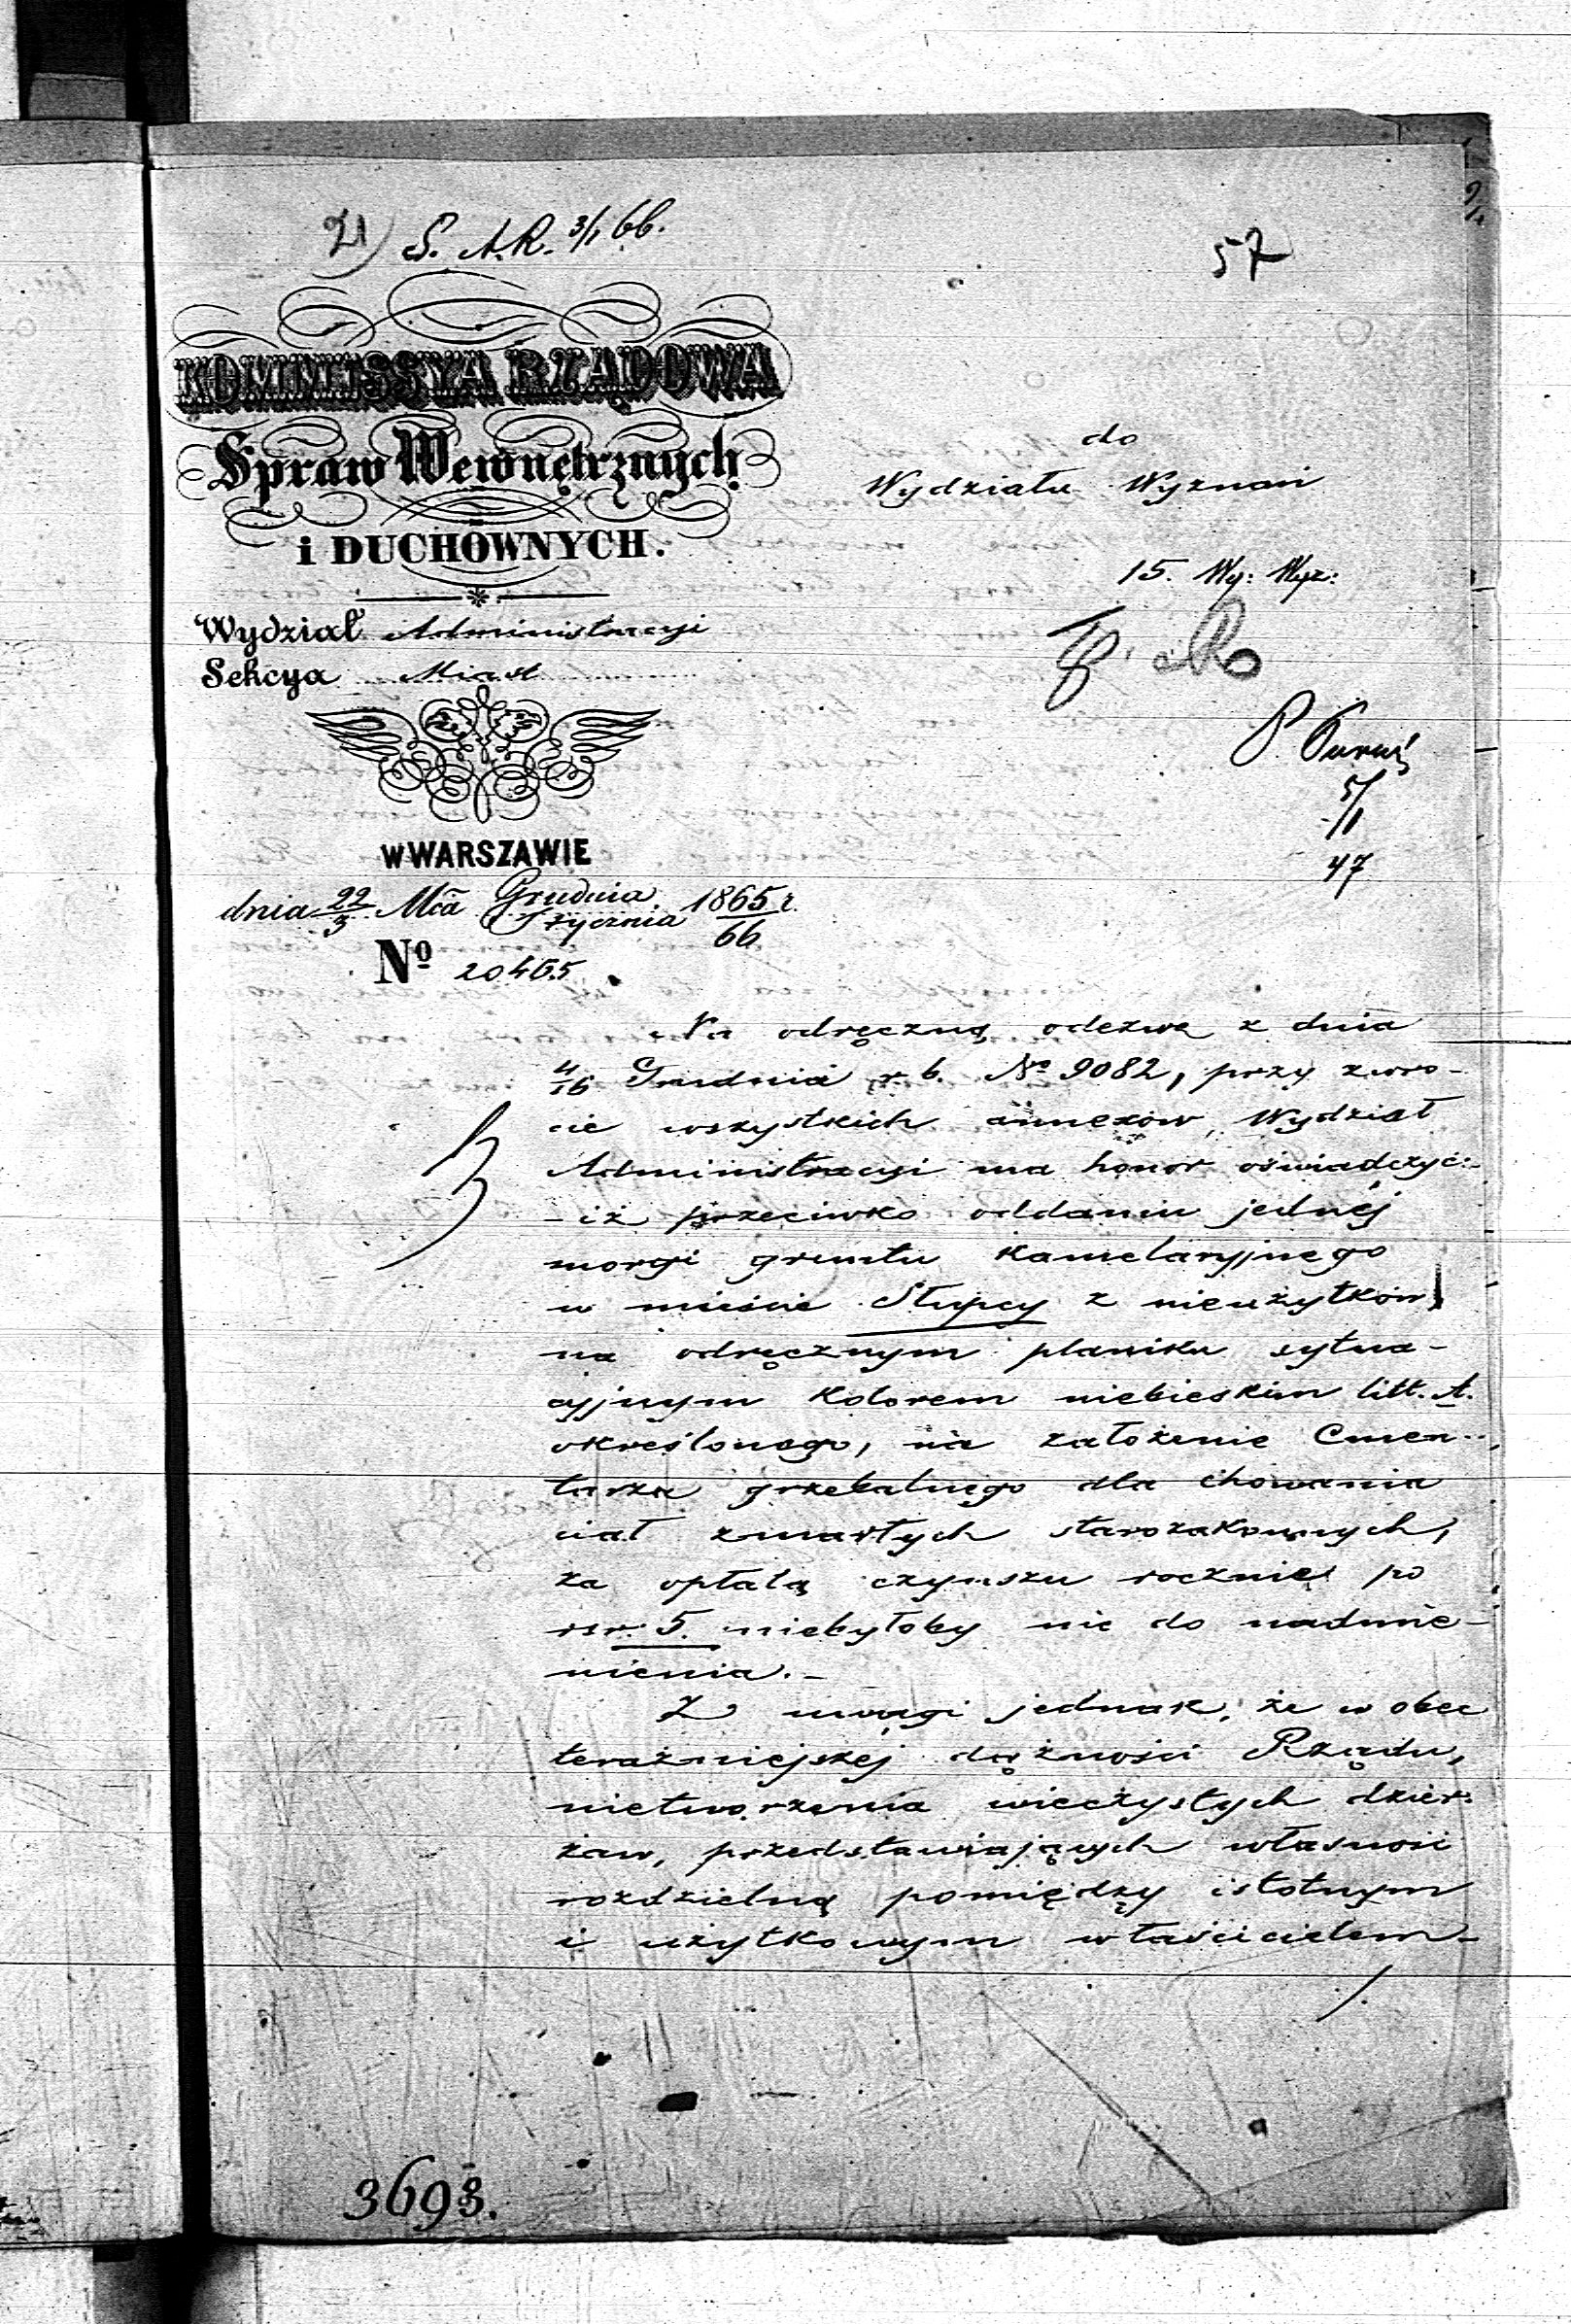 21) S. A. R. 3/1 66.
57
KOMMISSYA RZĄDOWA
Spraw Wewnętrznych
i DUCHOWNYCH.
do
Wydziału Wyznań
15. Wy: Wyz:
Wydział Administracyi
Sekcya Miast
P.
5/1
47
W WARSZAWIE
dnia 22/3 Mca Grudnia/Stycznia 1865/66 r.
No 20465
Na odręczną odezwę z dnia
4/16 Grudnia r b. No 9082, przy zwro-
cie wszystkich annexów, Wydział
Administracyi ma honor oświadczyć:
iż przeciwko oddaniu jednéj
morgi gruntu kamelaryjnego
w mieście Słupcy z nieużytków,
na odręcznym planiku sytua-
cyjnym kolorem niebieskim litt. A.
określonego, na założenie Cmen-
tarza grzebalnego dla chowania
ciał zmarłych starozakonnych,
za opłatą czynszu rocznie po
rsr. 5. niebyłoby nic do nadmie-
nienia.-
Z uwagi jednak, że w obec
teraźniejszéj dążności Rządu,
nietworzenia wieczystych dzier-
żaw, przedstawiających własność
rozdzielną pomiędzy istotnym
i użytkowym właścicielem-
/.
3693.